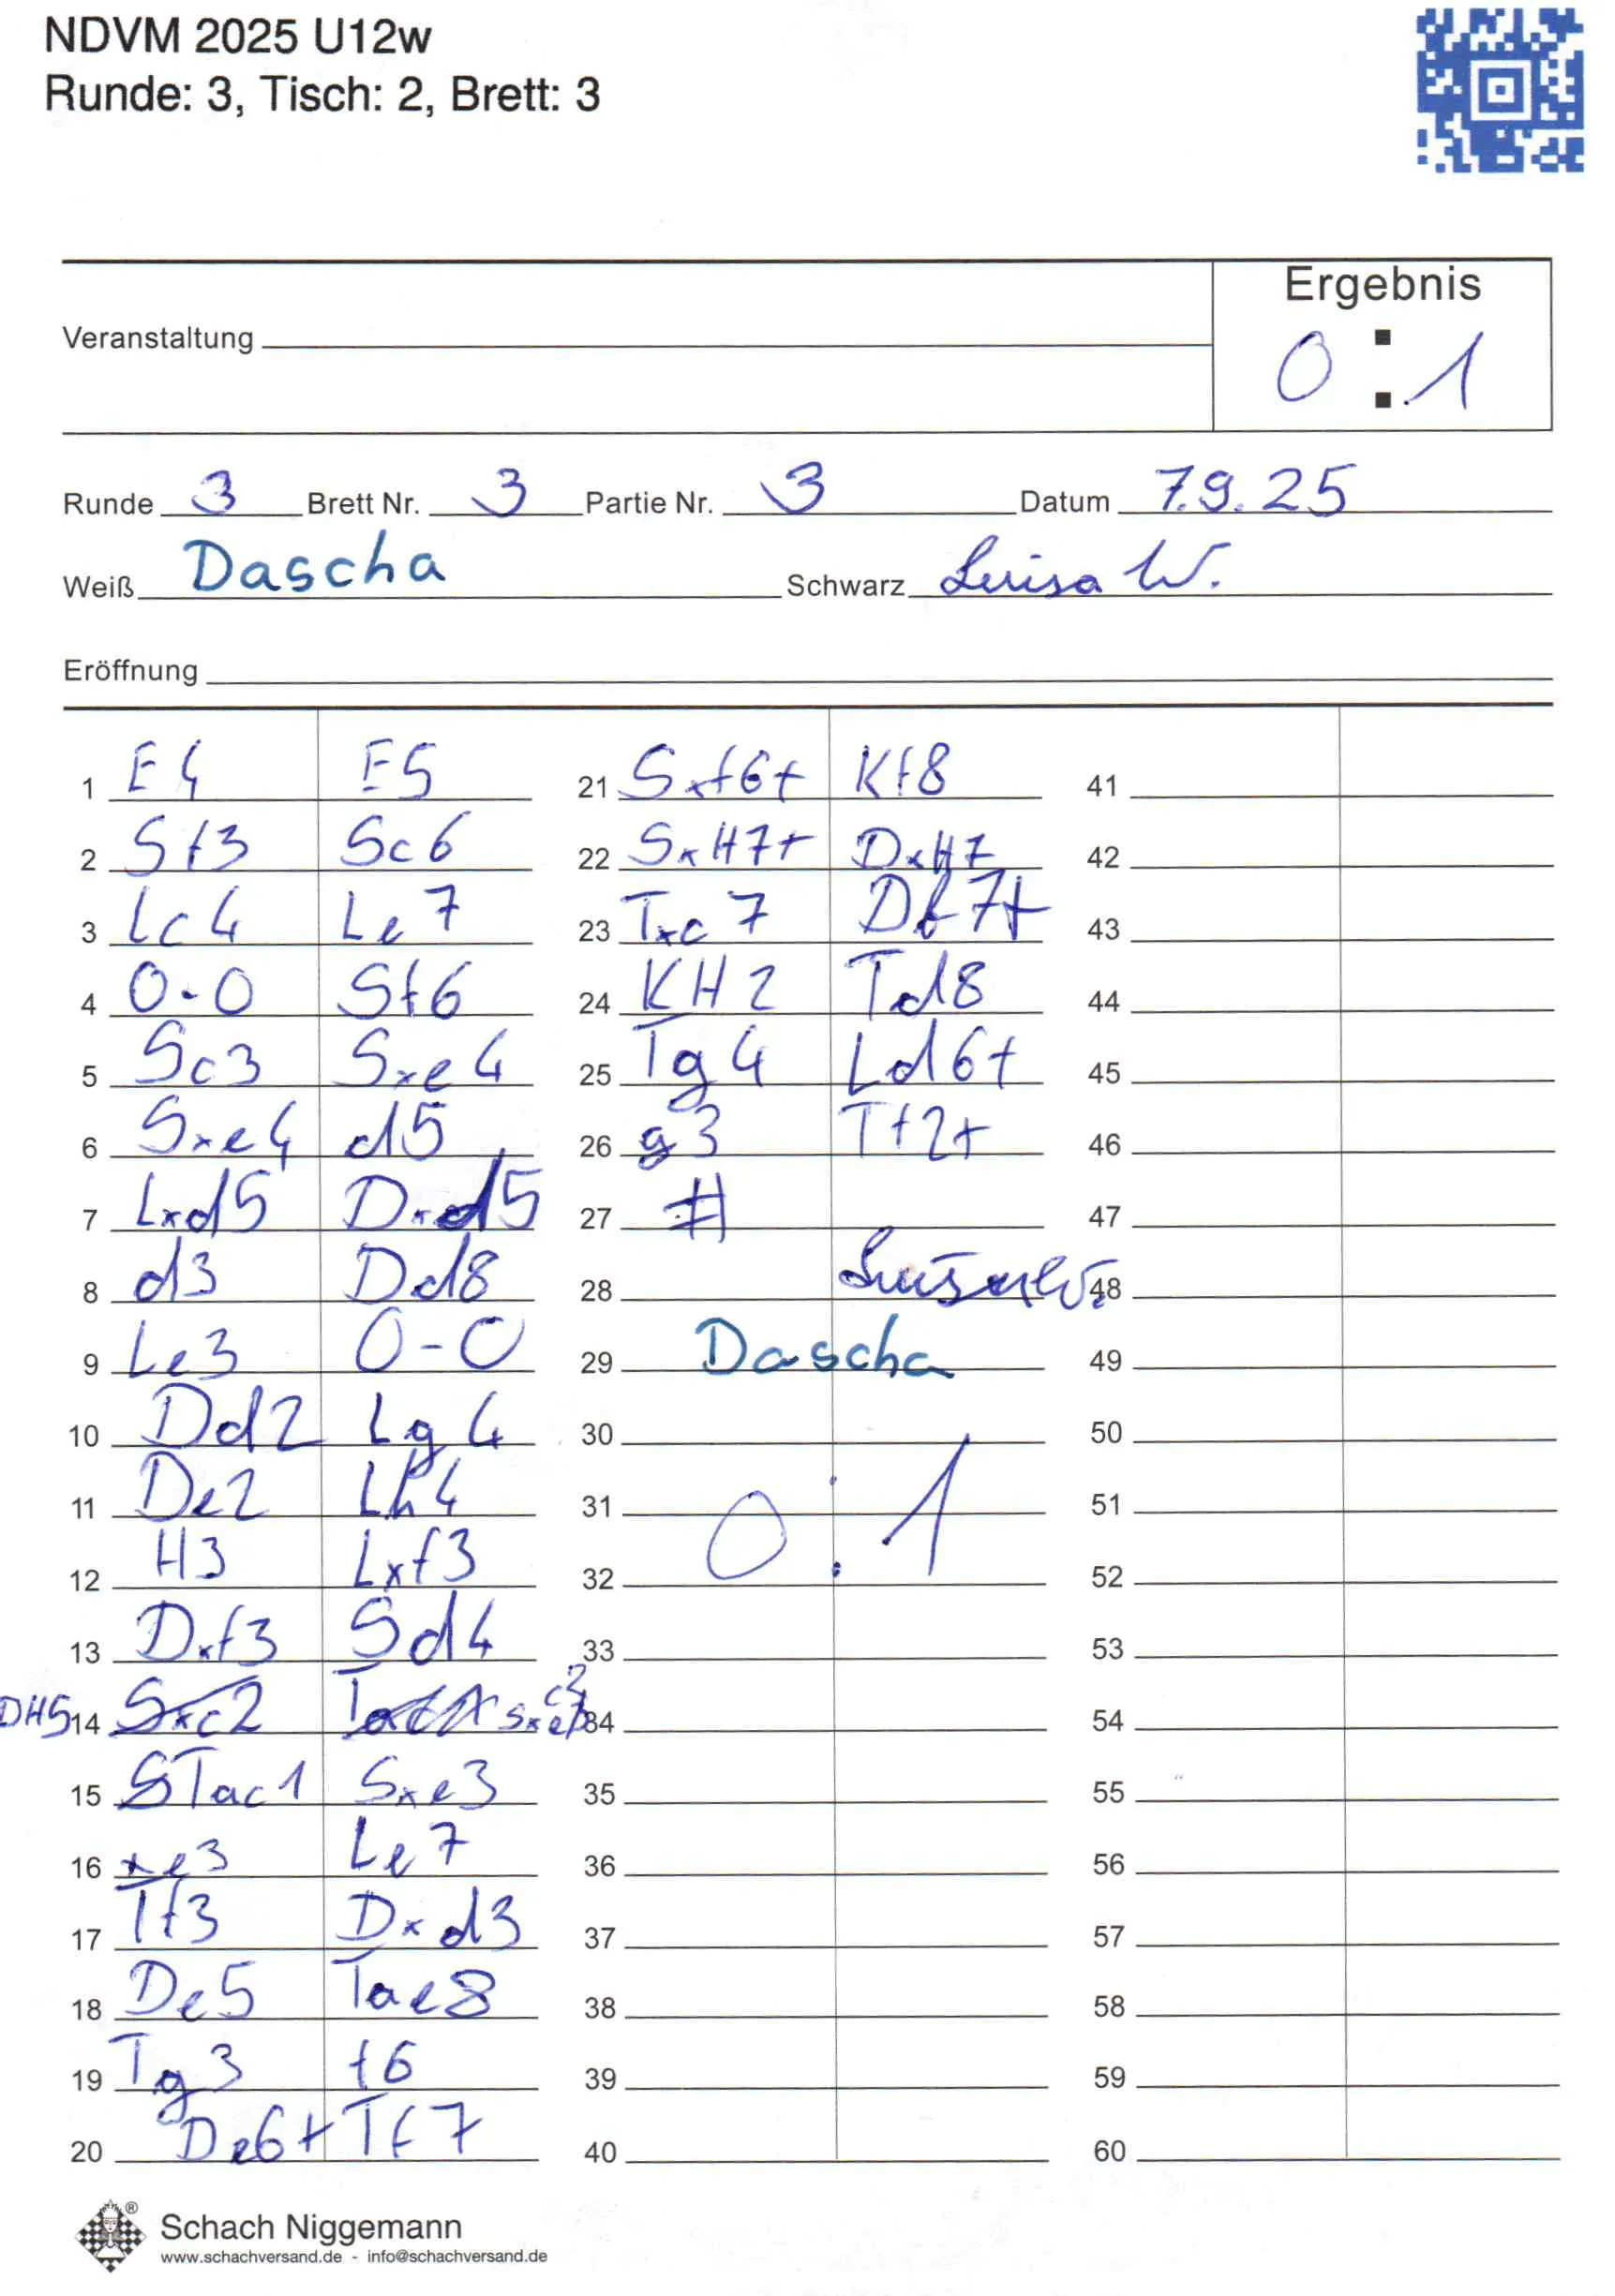 NDVM 2025 U12w
Runde: 3, Tisch: 2, Brett: 3
Ergebnis
Veranstaltung
0 : 1
Runde 3 Brett Nr. 3 Partie Nr. 3 Datum 7.9.25
Weiß Dascha Schwarz Luisa W.
Eröffnung
1 E4 E5 21 Sxf6+ Kf8 41
2 Sf3 Sc6 22 SxH7+ DxH7 42
3 Lc4 Le7 23 Txc7 Df7+ 43
4 0-0 Sf6 24 KH2 Td8 44
5 Sc3 Sxe4 25 Tg4 Ld6+ 45
6 Sxe4 d5 26 g3 Tf2+ 46
7 Lxd5 Dxd5 27 # 47
8 d3 Dd8 28 Luisa W. 48
9 Le3 0-0 29 Dascha 49
10 Dd2 Lg4 30 50
11 De2 Lh4 31 0 : 1 51
12 H3 Lxf3 32 52
13 Dxf3 Sd4 33 53
DH5 14 Sxc2 34 54
15 Tac1 Sxe3 35 55
16 xe3 Le7 36 56
17 Tf3 Dxd3 37 57
18 De5 Tae8 38 58
19 Tg3 f6 39 59
20 De6+ Tf7 40 60
Schach Niggemann
www.schachversand.de - info@schachversand.de